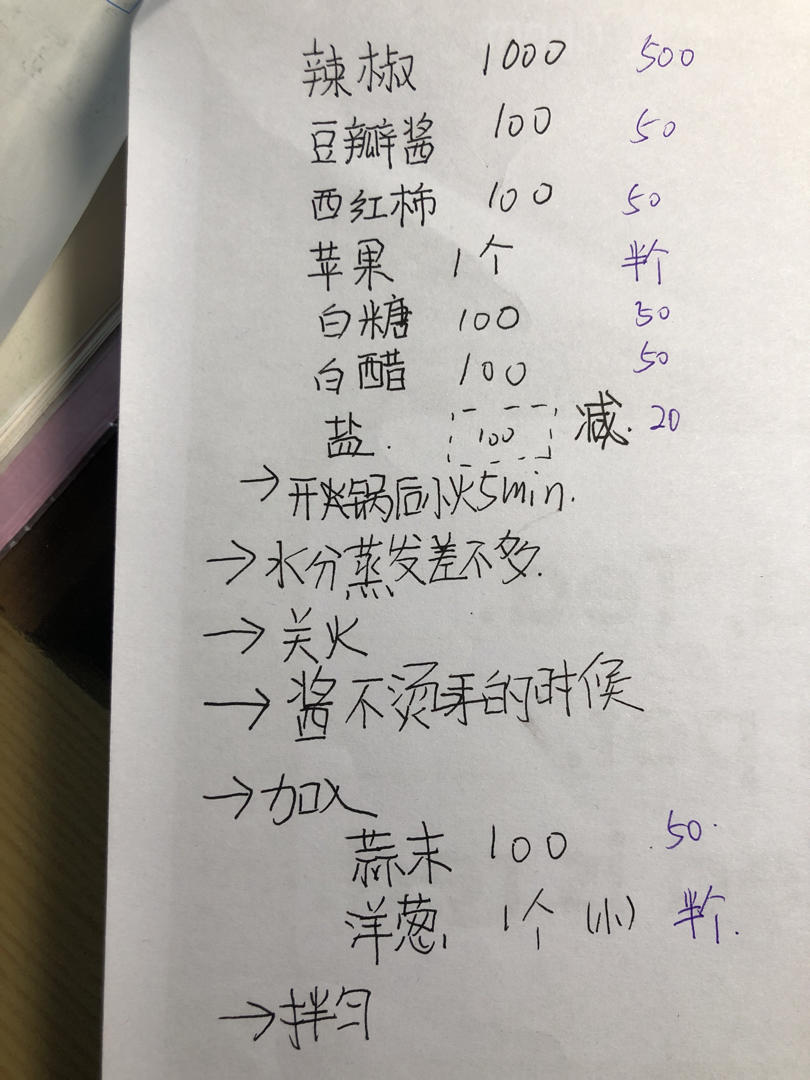 辣椒 1000 500
豆瓣酱 100 50
西红柿 100 50
苹果 1个 半个
白糖 100 50
白醋 100 50
盐. 100 减. 20
→开锅后小火5min.
→水分蒸发差不多.
→关火
→酱不烫手的时候
→加入
蒜末 100 50.
洋葱, 1个(小) 半个.
→拌匀